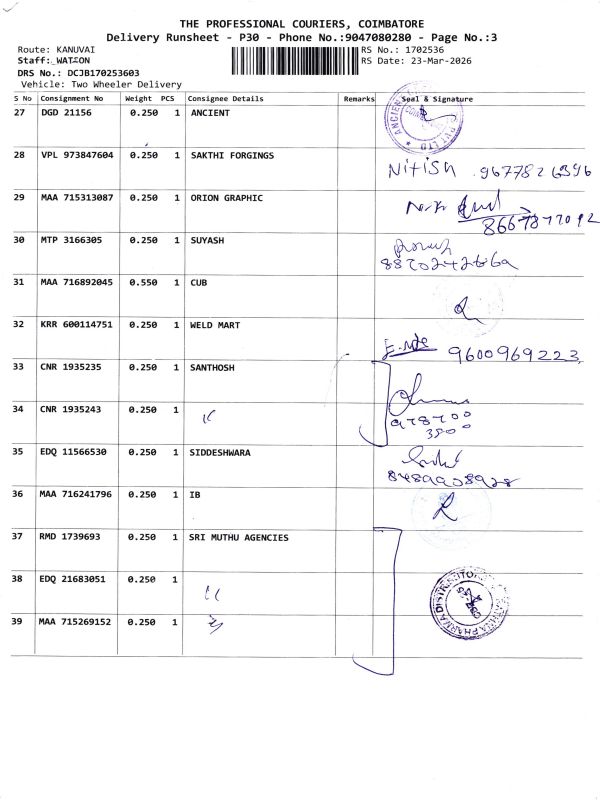 THE PROFESSIONAL COURIERS, COIMBATORE
Delivery Runsheet - P30 - Phone No.:9047080280 - Page No.:3
Route: KANUVAI
Staff: WATSON
DRS No.: DCJB170253603
Vehicle: Two Wheeler Delivery
RS No.: 1702536
RS Date: 23-Mar-2026
S No Consignment No Weight PCS Consignee Details Remarks Seal & Signature
27 DGD 21156 0.250 1 ANCIENT
28 VPL 973847604 0.250 1 SAKTHI FORGINGS Nitish 9677826396
29 MAA 715313087 0.250 1 ORION GRAPHIC
8667877092
30 MTP 3166305 0.250 1 SUYASH
31 MAA 716892045 0.550 1 CUB
32 KRR 600114751 0.250 1 WELD MART 9600969223
33 CNR 1935235 0.250 1 SANTHOSH
34 CNR 1935243 0.250 1 "
978700
3800
35 EDQ 11566530 0.250 1 SIDDESHWARA
8489908928
36 MAA 716241796 0.250 1 IB
37 RMD 1739693 0.250 1 SRI MUTHU AGENCIES
38 EDQ 21683051 0.250 1 "
39 MAA 715269152 0.250 1